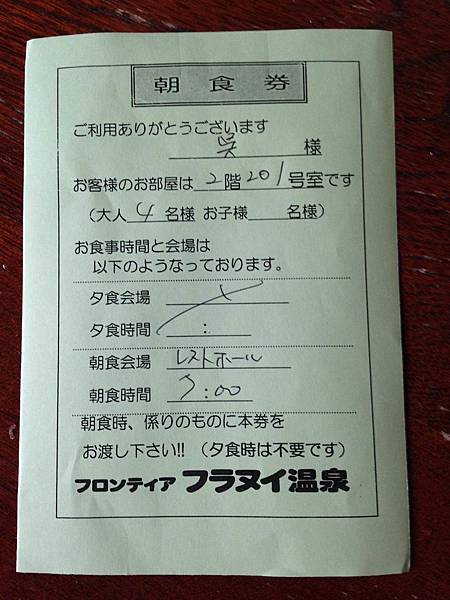 朝食券
ご利用ありがとうございます
吳 様
お客様のお部屋は 2階 201号室です
(大人 4 名様 お子様 名様)
お食事時間と会場は
以下のようなっております。
夕食会場
夕食時間 :
朝食会場 レストホール
朝食時間 7:00
朝食時、係りのものに本券を
お渡し下さい!! (夕食時は不要です)
フロンティア フラヌイ温泉